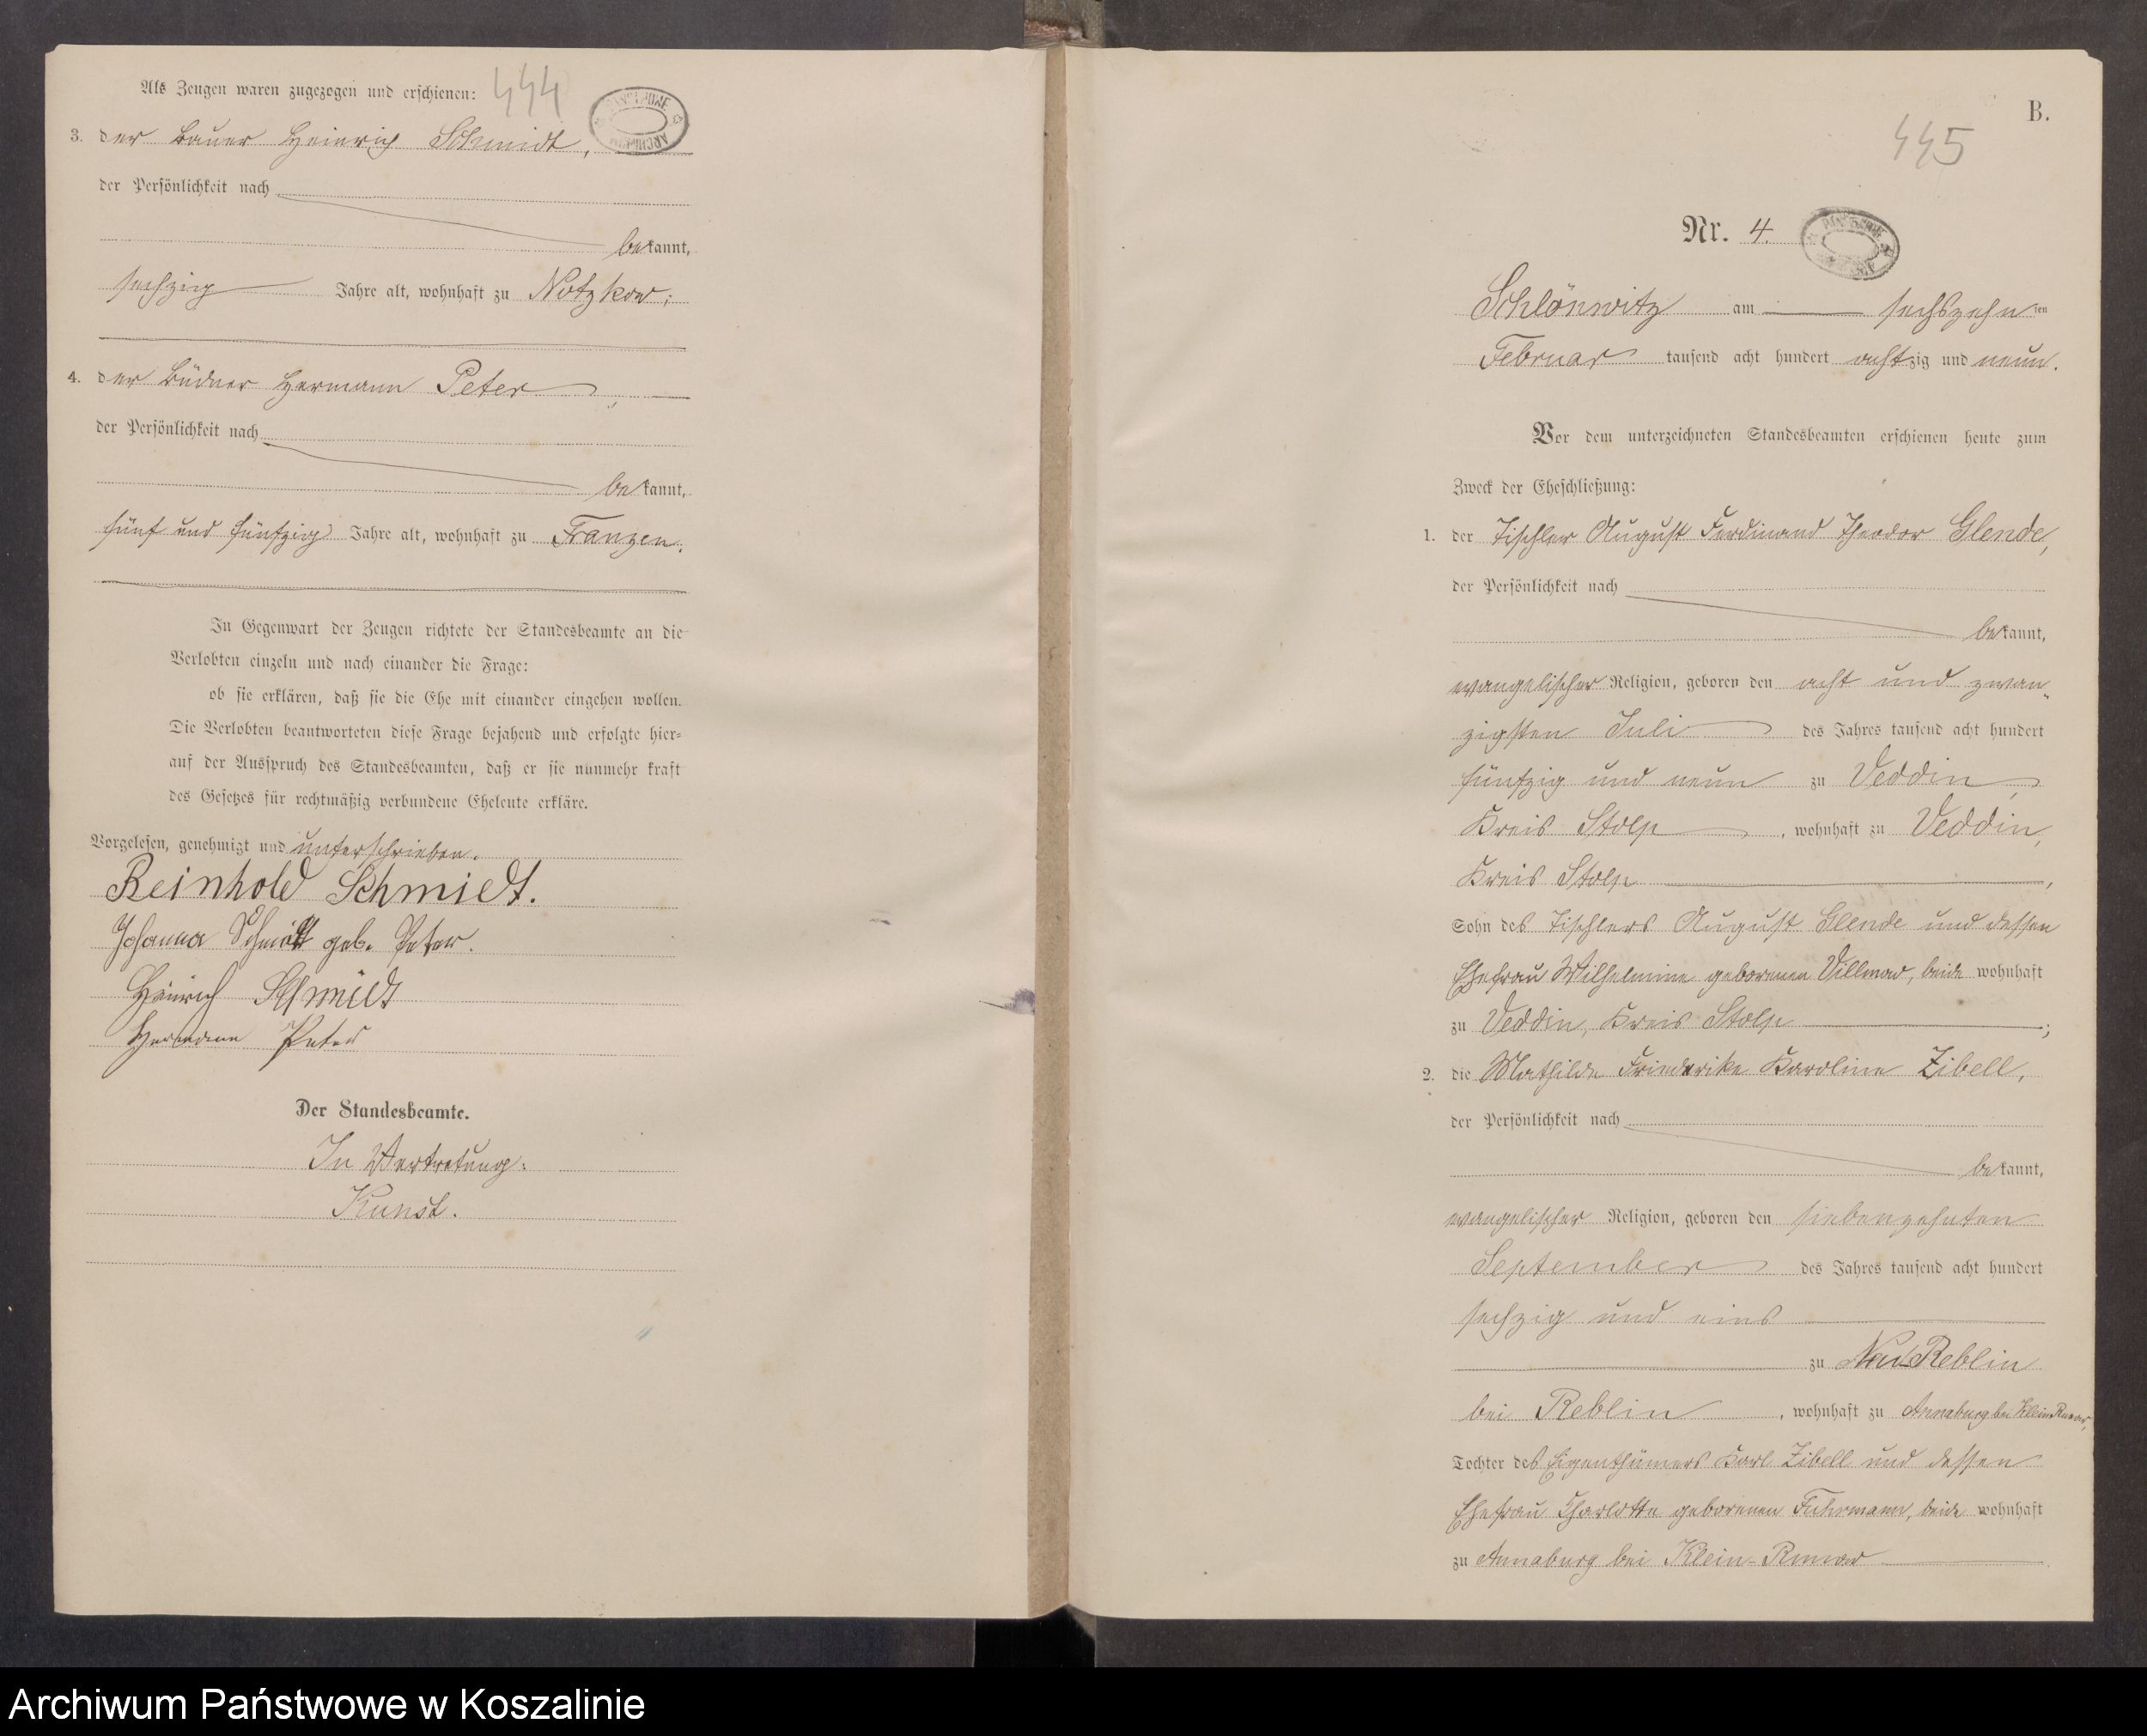 Als Zeugen waren zugezogen und erschienen:
444
3. der Bauer Heinrich Schmidt,
der Persönlichkeit nach
bekannt,
sechzig Jahre alt, wohnhaft zu Notzkow;
4. der Büdner Hermann Peter,
der Persönlichkeit nach
bekannt,
fünf und fünfzig Jahre alt, wohnhaft zu Franzen.
In Gegenwart der Zeugen richtete der Standesbeamte an die
Verlobten einzeln und nach einander die Frage:
ob sie erklären, daß sie die Ehe mit einander eingehen wollen.
Die Verlobten beantworteten diese Frage bejahend und erfolgte hier-
auf der Ausspruch des Standesbeamten, daß er sie nunmehr kraft
des Gesetzes für rechtmäßig verbundene Eheleute erkläre.
Vorgelesen, genehmigt und unterschrieben.
Reinhold Schmidt.
Johanna Schmidt geb. Peter.
Heinrich Schmidt
Hermann Peter
Der Standesbeamte.
In Vertretung:
Kunst.
B.
445
Nr. 4.
Schlönwitz am sechszehnten
Februar tausend acht hundert achtzig und neun.
Vor dem unterzeichneten Standesbeamten erschienen heute zum
Zweck der Eheschließung:
1. der Tischler August Ferdinand Theodor Glende,
der Persönlichkeit nach
bekannt,
evangelischer Religion, geboren den acht und zwan-
zigsten Juli des Jahres tausend acht hundert
fünfzig und neun zu Veddin,
Kreis Stolp, wohnhaft zu Veddin,
Kreis Stolp,
Sohn des Tischlers August Glende und dessen
Ehefrau Wilhelmine geborenen Villmow, beide wohnhaft
zu Veddin, Kreis Stolp;
2. die Mathilde Friederike Karoline Zibell,
der Persönlichkeit nach
bekannt,
evangelischer Religion, geboren den siebenzehnten
September des Jahres tausend acht hundert
sechzig und eins
zu Neu-Reblin
bei Reblin, wohnhaft zu Annaburg bei Klein Runow,
Tochter des Eigenthümers Karl Zibell und dessen
Ehefrau Charlotte geborenen Fuhrmann, beide wohnhaft
zu Annaburg bei Klein-Runow
Archiwum Państwowe w Koszalinie